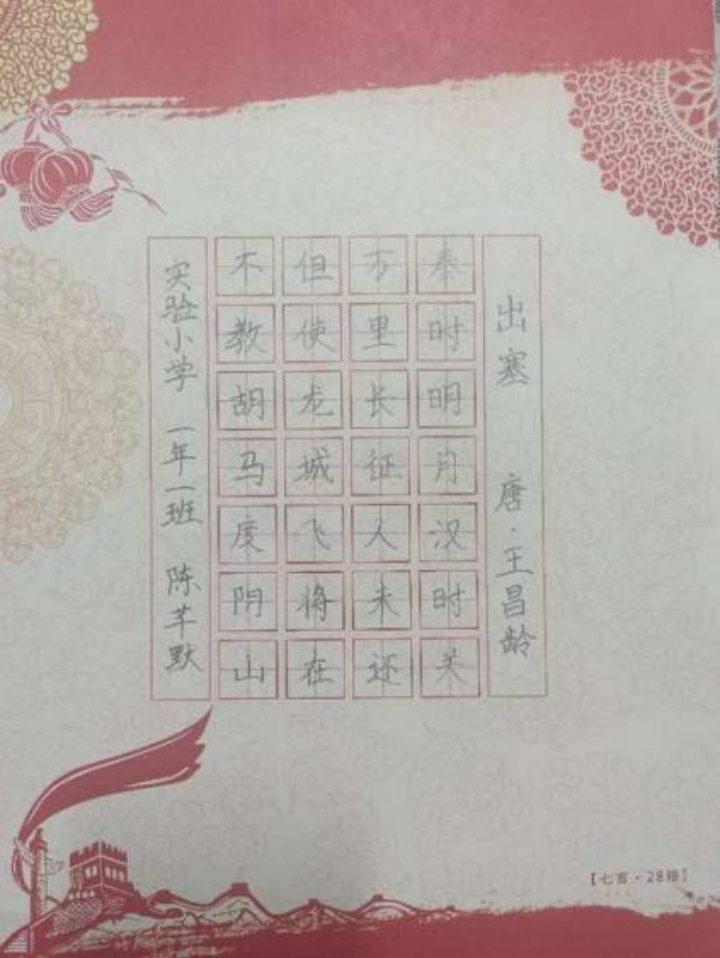 出塞 唐·王昌龄
秦时明月汉时关
万里长征人未还
但使龙城飞将在
不教胡马度阴山
实验小学 一年一班 陈芊默
【七言·28格】